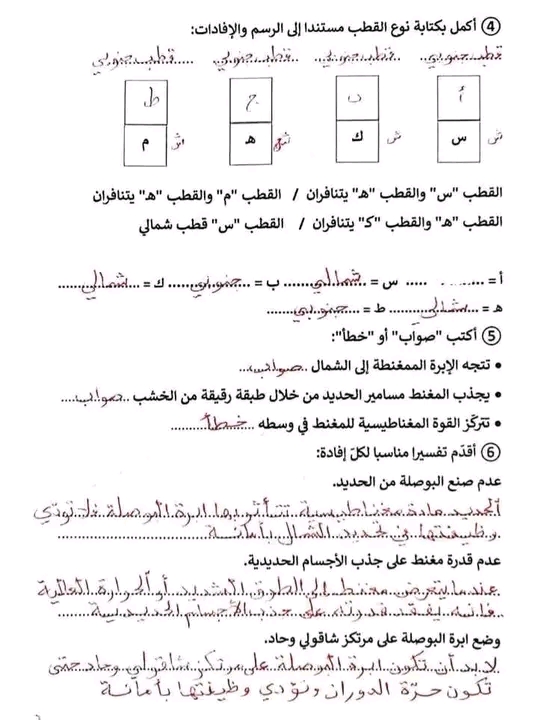 ④ أكمل بكتابة نوع القطب مستندا إلى الرسم والإفادات:
قطب جنوبي قطب جنوبي قطب جنوبي قطب جنوبي
أ ب ج ط
س ش ك ش هـ م
القطب "س" والقطب "هـ" يتنافران / القطب "م" والقطب "هـ" يتنافران
القطب "هـ" والقطب "كـ" يتنافران / القطب "س" قطب شمالي
أ = ........ س = شمالي ب = جنوبي ك = شمالي
هـ = شمالي ط = جنوبي
⑤ أكتب "صواب" أو "خطأ":
• تتجه الإبرة الممغنطة إلى الشمال صواب
• يجذب المغنط مسامير الحديد من خلال طبقة رقيقة من الخشب صواب
• تتركّز القوة المغناطيسية للمغنط في وسطه خطأ
⑥ أقدّم تفسيرا مناسبا لكلّ إفادة:
عدم صنع البوصلة من الحديد.
الحديد مادة مغناطيسية تتأثر بها ابرة البوصلة فلا تؤدي
وظيفتها في تحديد الشمال بأمانة
عدم قدرة مغنط على جذب الأجسام الحديدية.
عندما يتعرض مغنط إلى الطرق الشديد أو الحرارة العالية
فانه يفقد قدرته على جذب الأجسام الحديدية
وضع ابرة البوصلة على مرتكز شاقولي وحاد.
لا بد أن تكون ابرة البوصلة على مرتكز شاقولي وحاد حتى
تكون حرّة الدوران وتؤدي وظيفتها بأمانة